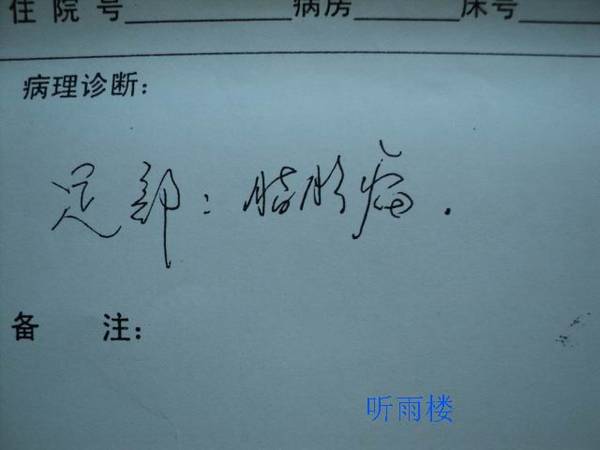 住院号 病房 床号
病理诊断:
足部: 脂肪瘤.
备 注:
听雨楼